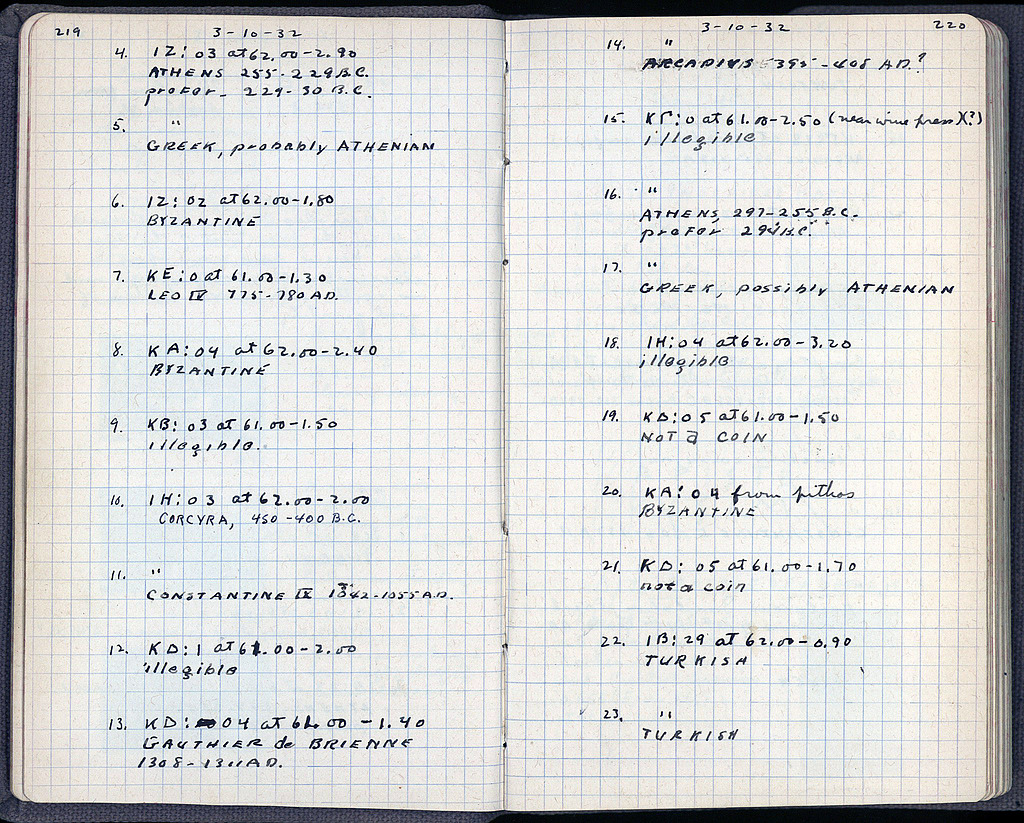 219
3-10-32
4. IZ:03 at 62.00-2.90
ATHENS 255-229 B.C.
prefer- 229-30 B.C.
5. "
GREEK, probably ATHENIAN
6. IZ:02 at 62.00-1.80
BYZANTINE
7. KE:0 at 61.00-1.30
LEO IV 775-780 A.D.
8. KA:04 at 62.00-2.40
BYZANTINE
9. KB:03 at 61.00-1.50
illegible.
10. IH:03 at 62.00-2.00
CORCYRA, 450-400 B.C.
11. "
CONSTANTINE IX 1042-1055 A.D.
12. KD:1 at 61.00-2.00
illegible
13. KD:04 at 61.00-1.40
GAUTHIER de BRIENNE
1308-1311 A.D.
220
3-10-32
14. "
ARCADIUS 395-408 A.D.?
15. KΓ:0 at 61.00-2.50 (near wine press)(?)
illegible
16. "
ATHENS, 297-255 B.C.
prefer 294 B.C.
17. "
GREEK, possibly ATHENIAN
18. IH:04 at 62.00-3.20
illegible
19. KD:05 at 61.00-1.50
NOT a COIN
20. KA:04 from pithos
BYZANTINE
21. KD:05 at 61.00-1.70
not a coin
22. IB:29 at 62.00-0.90
TURKISH
23. "
TURKISH